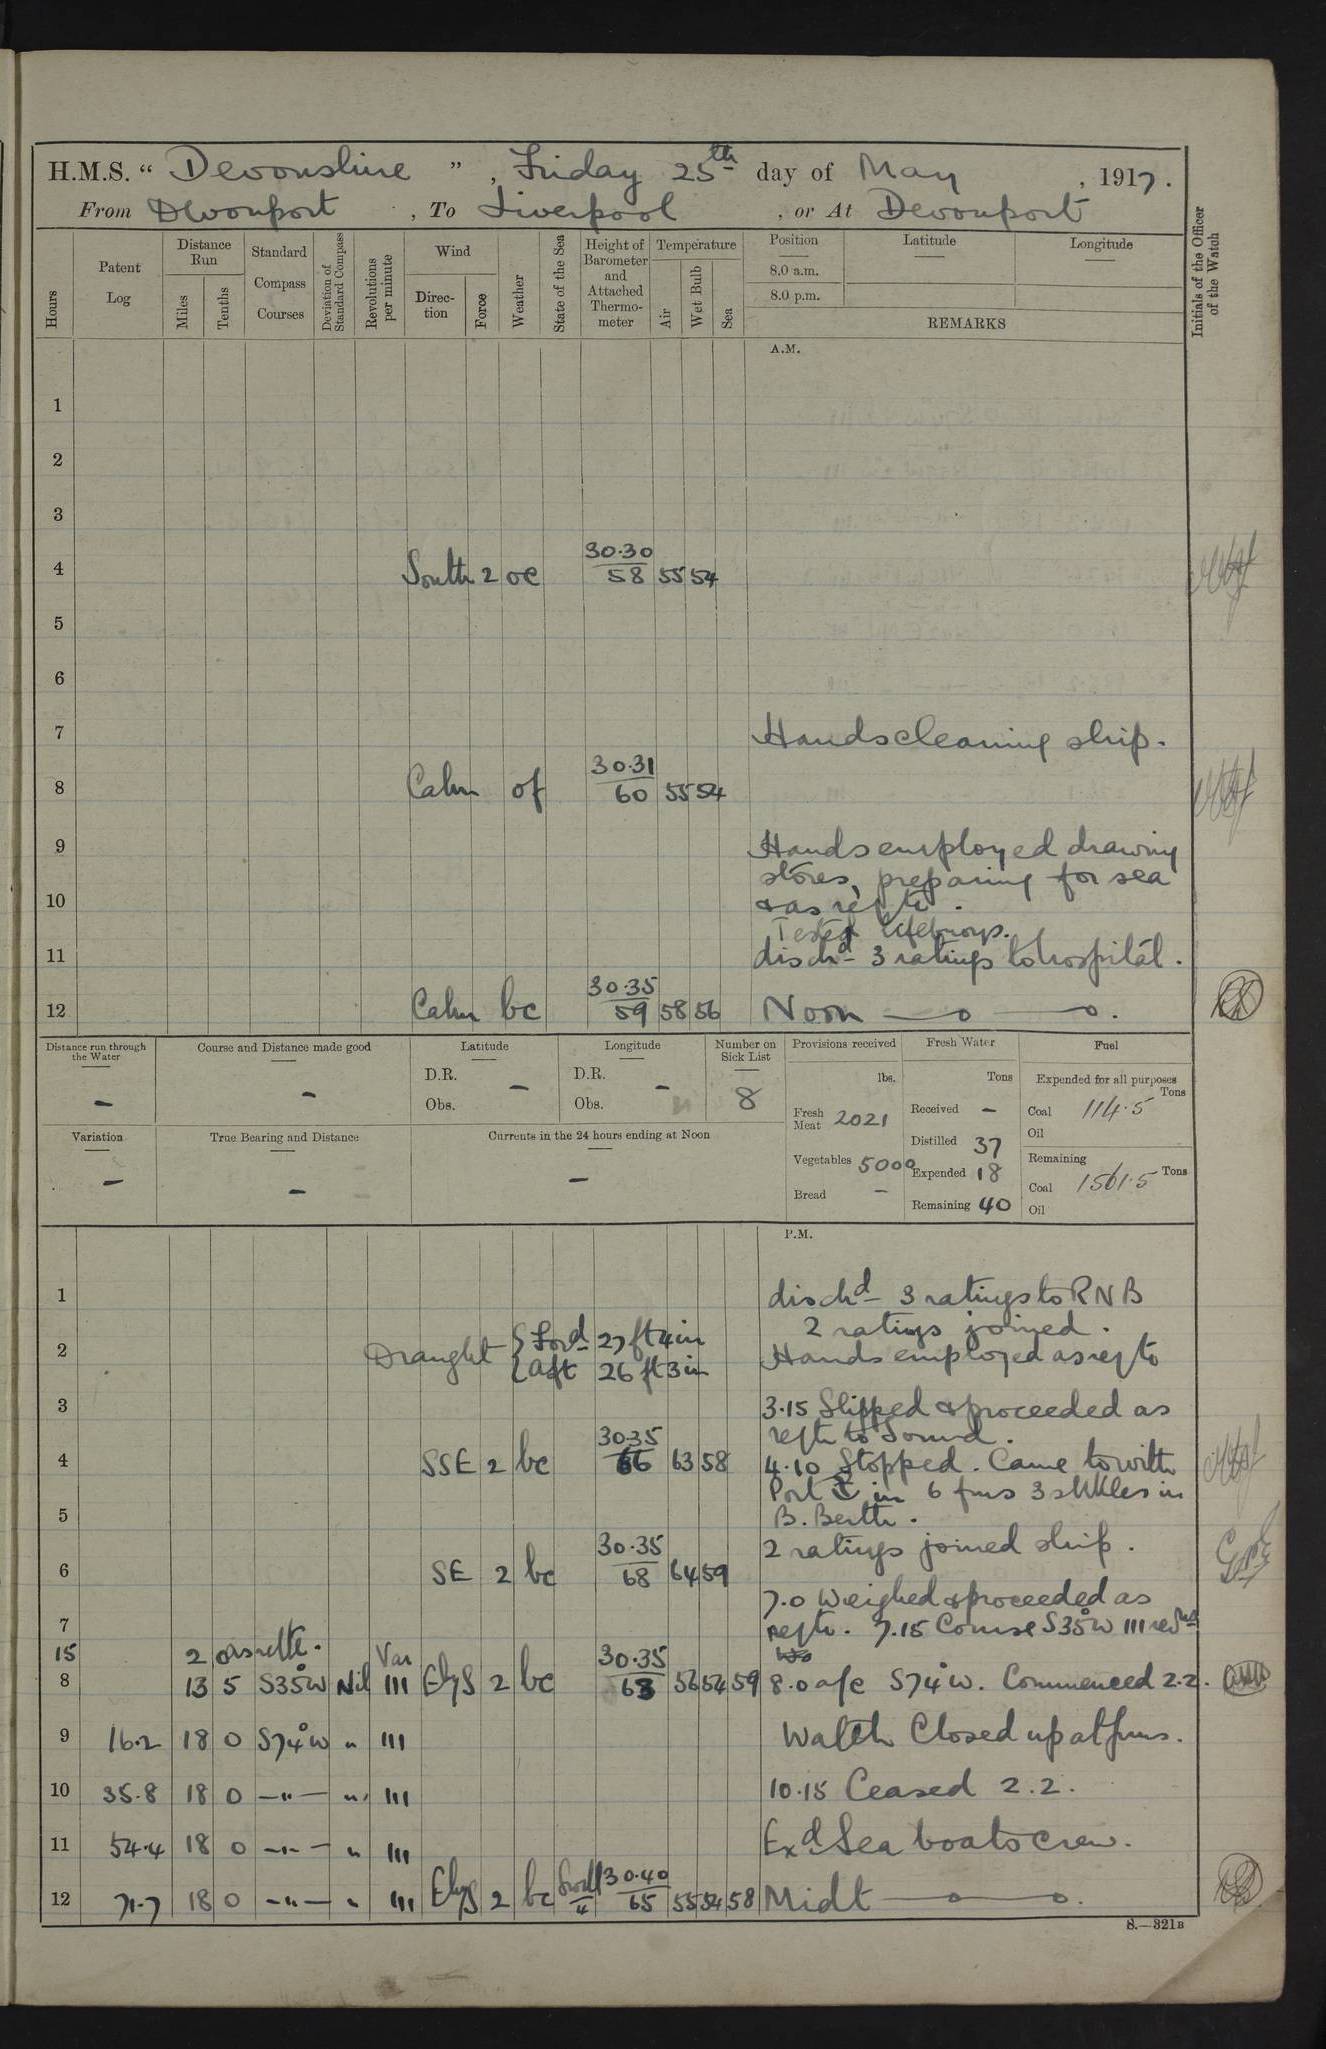 H.M.S. “ Devonshire ” , Friday 25th day of May , 1917.
From Devonport , To Liverpool , or At Devonport
Hours
Patent Log
Distance Run
Miles
Tenths
Standard Compass Courses
Deviation of Standard Compass
Revolutions per minute
Wind
Direc-tion
Force
Weather
State of the Sea
Height of Barometer and Attached Thermo-meter
Temperature
Air
Wet Bulb
Sea
Position Latitude Longitude
8.0 a.m.
8.0 p.m.
REMARKS
Initials of the Officer of the Watch
A.M.
1
2
3
30.30
4 South 2 oc 58 55 54
5
6
7 Hands cleaning ship.
30.31
8 Calm of 60 55 54
9 Hands employed drawing
stores, preparing for sea
10 & as reqte.
Tested lifebuoys.
11 dischd 3 ratings to hospital.
30.35
12 Calm bc 59 58 56 Noon
Distance run through the Water –
Course and Distance made good –
Latitude
D.R. –
Obs.
Longitude
D.R. –
Obs.
Number on Sick List
8
Provisions received
lbs.
Fresh Meat 2021
Vegetables 5000
Bread –
Fresh Water
Tons
Received –
Distilled 37
Expended 18
Remaining 40
Fuel
Expended for all purposes
Tons
Coal 114.5
Oil
Remaining
Coal 1561.5 Tons
Oil
Variation –
True Bearing and Distance –
Currents in the 24 hours ending at Noon –
P.M.
1 dischd 3 ratings to RNB
2 ratings joined.
2 Draught { Ford 27 ft 4 in
{ Aft 26 ft 3 in
Hands employed as reqte
3 3.15 Slipped & proceeded as
reqte to Sound.
30.35
4 SSE 2 bc 66 63 58 4.10 Stopped. Came to with
Port ⚓ in 6 fms 3 shkles in
5 B. Berth.
30.35 2 ratings joined ship.
6 SE 2 bc 68 64 59
7.0 Weighed & proceeded as
7 reqte. 7.15 Course S35°W 111 revns
15 2 as reqte. Var 30.35
8 13 5 S35°W Nil 111 EbyS 2 bc 63 56 54 59 8.0 a/c S74°W. Commenced 2.2.
9 16.2 18 0 S74°W " 111 Watch Closed up at guns.
10 35.8 18 0 —"— " 111 10.15 Ceased 2.2.
11 54.4 18 0 —"— " 111 Exd Sea boats crew.
30.40
12 71.7 18 0 —"— " 111 EbyS 2 bc 65 55 54 58 Midt
S.—321B